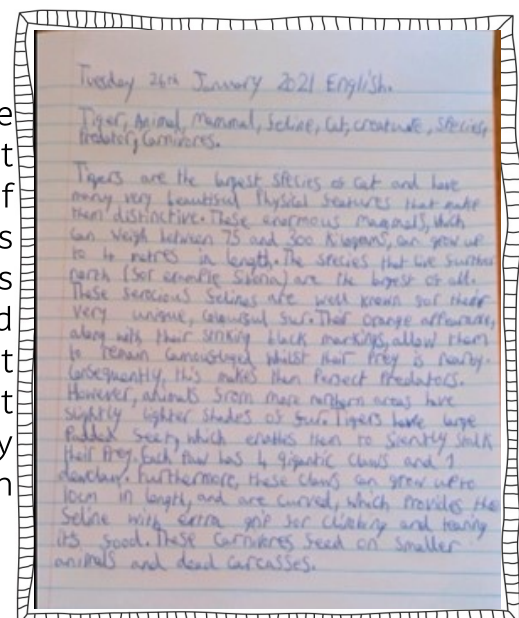 e
t
f
s
s
d
t
t
y
n
Tuesday 26th January 2021 English.
Tiger, Animal, Mammal, Feline, Cat, creature, species,
Predator, Carnivores.
Tigers are the largest species of cat and have
many very beautiful Physical features that make
them distinctive. These enormous mammals, which
can weigh between 75 and 300 kilograms, can grow up
to 4 metres in length. The species that live further
north (for example Siberia) are the largest of all.
These ferocious felines are well known for their
very unique, colourful fur. Their orange appearance,
along with their striking black markings, allow them
to remain camouflaged whilst their Prey is nearby.
Consequently, this makes them Perfect Predators.
However, animals from more northern areas have
slightly lighter shades of fur. Tigers have large
Padded feet, which enables them to silently stalk
their Prey. Each Paw has 4 gigantic claws and 1
dewclaw. Furthermore, these claws can grow up to
10cm in length, and are curved, which provides the
feline with extra grip for climbing and tearing
its food. These Carnivores feed on smaller
animals and dead carcasses.